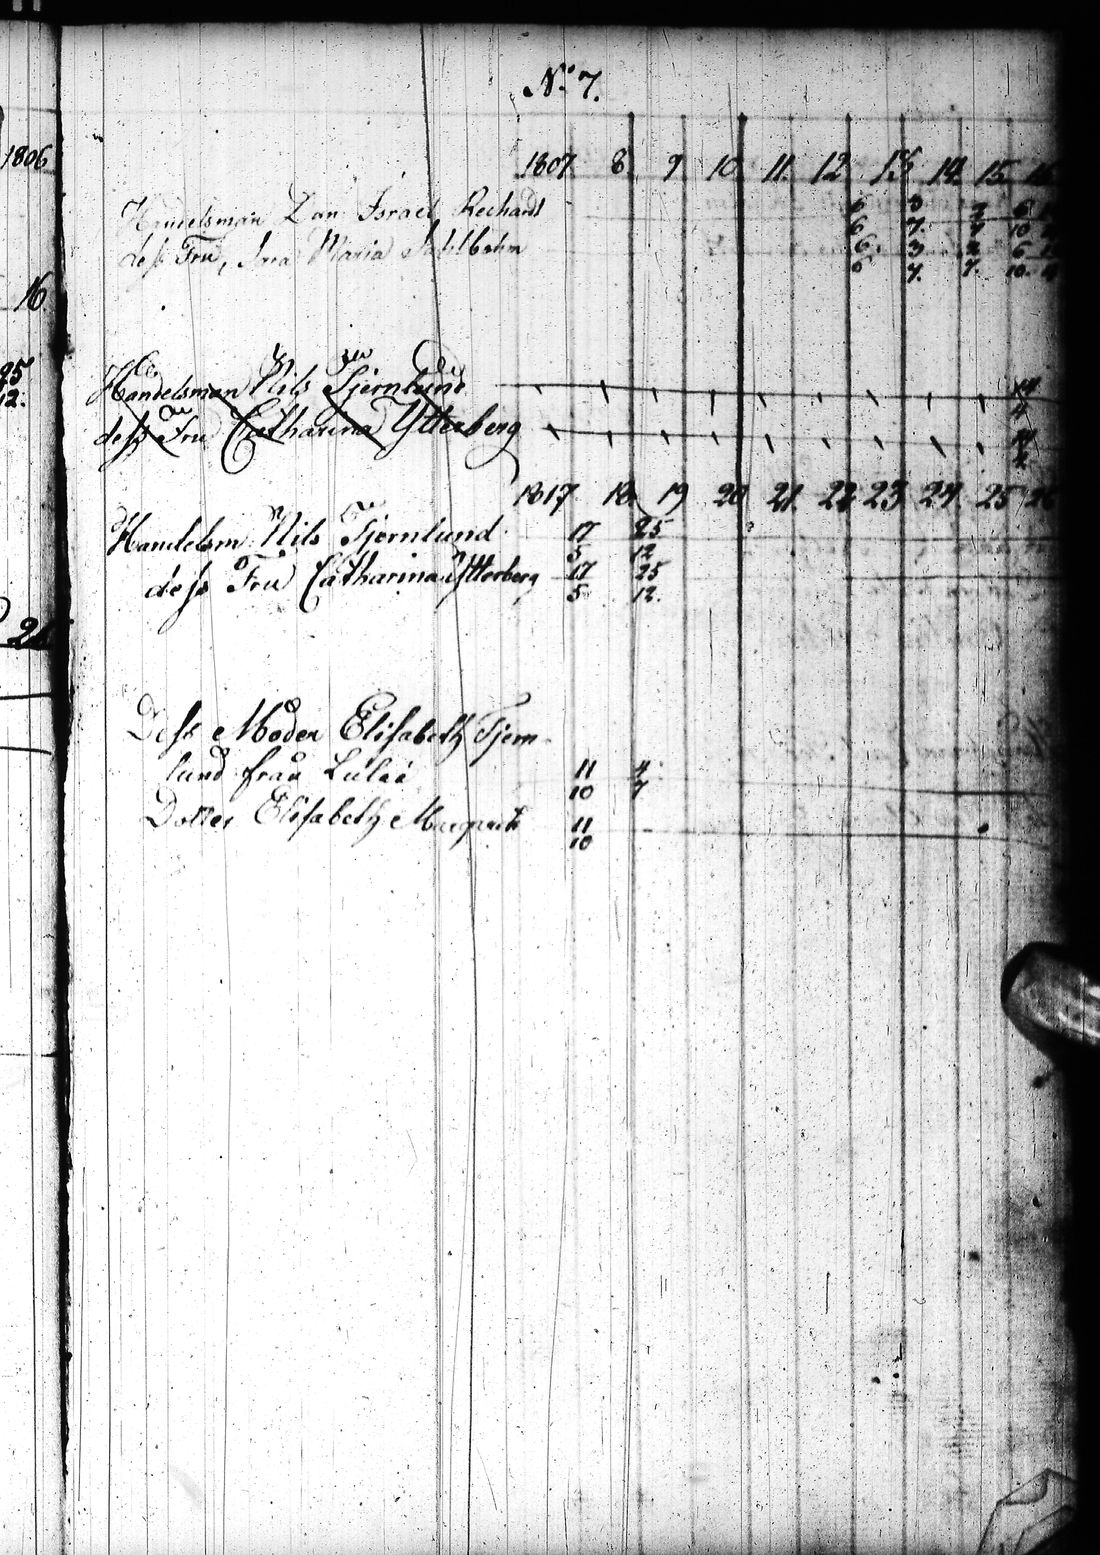 No 7.
1806 1807. 8. 9 10. 11. 12 13 14. 15. 16
Handelsman Zan Israel Rechardt 6 3 2 6
6 7. 7 10
dess Fru, Maria 6. 3 2 6
6 7. 7. 10
16.
25 Handelsman Nils Tjernlund 14
12. 4
dess Fru Catharina Ytterberg 14
1817 18 19 20 21. 22 23 24. 25 26
Handelsm. Nils Tjernlund 17 25
5 12
dess Fru Catharina Ytterberg 17 25
5 12.
Dess Moder Elisabeth Tjern-
lund från Luleå 11 4
10 7
Dotter Elisabeth Margreth 11
10